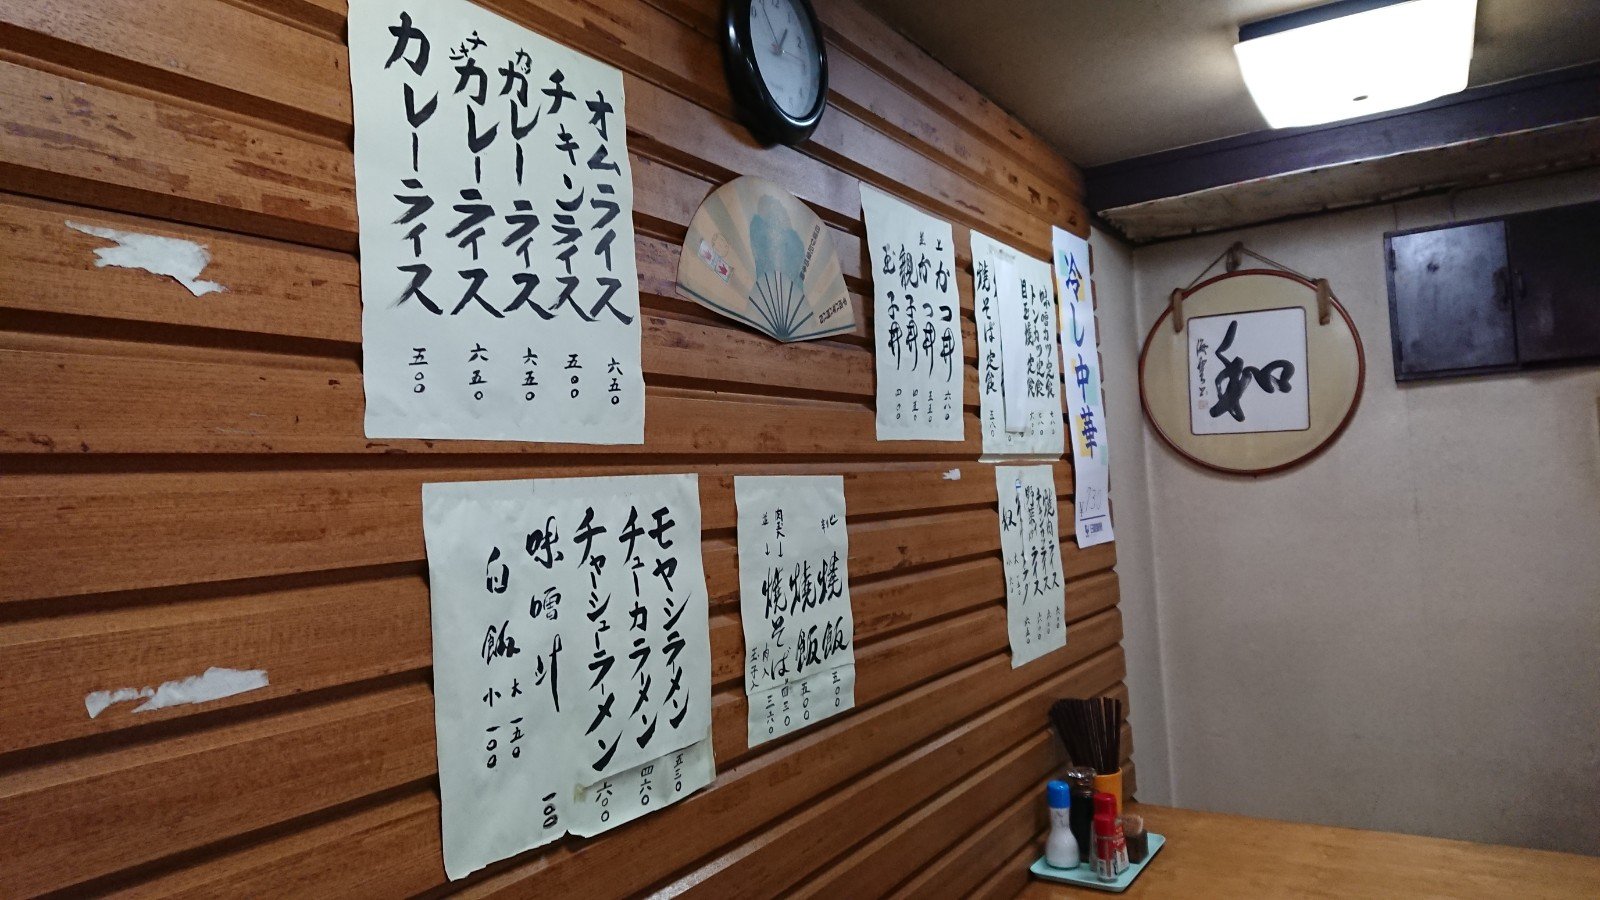 オムライス 六五〇
チキンライス 五〇〇
カツカレーライス 六五〇
チキンカレーライス 六五〇
カレーライス 五〇〇
上かつ丼 六八〇
並かつ丼 五五〇
親子丼 四五〇
玉子丼 四〇〇
味噌カツ定食
トンカツ定食
目玉焼定食
焼そば定食 五八〇
冷し中華
モヤシラーメン 五三〇
チューカラーメン 四六〇
チャーシューラーメン 六〇〇
味噌汁 一〇〇
白飯 大 一五〇
小 一〇〇
焼飯 五〇〇
焼飯 五〇〇
焼そば
肉入
玉子入 三六〇
焼肉ライス
奴
和